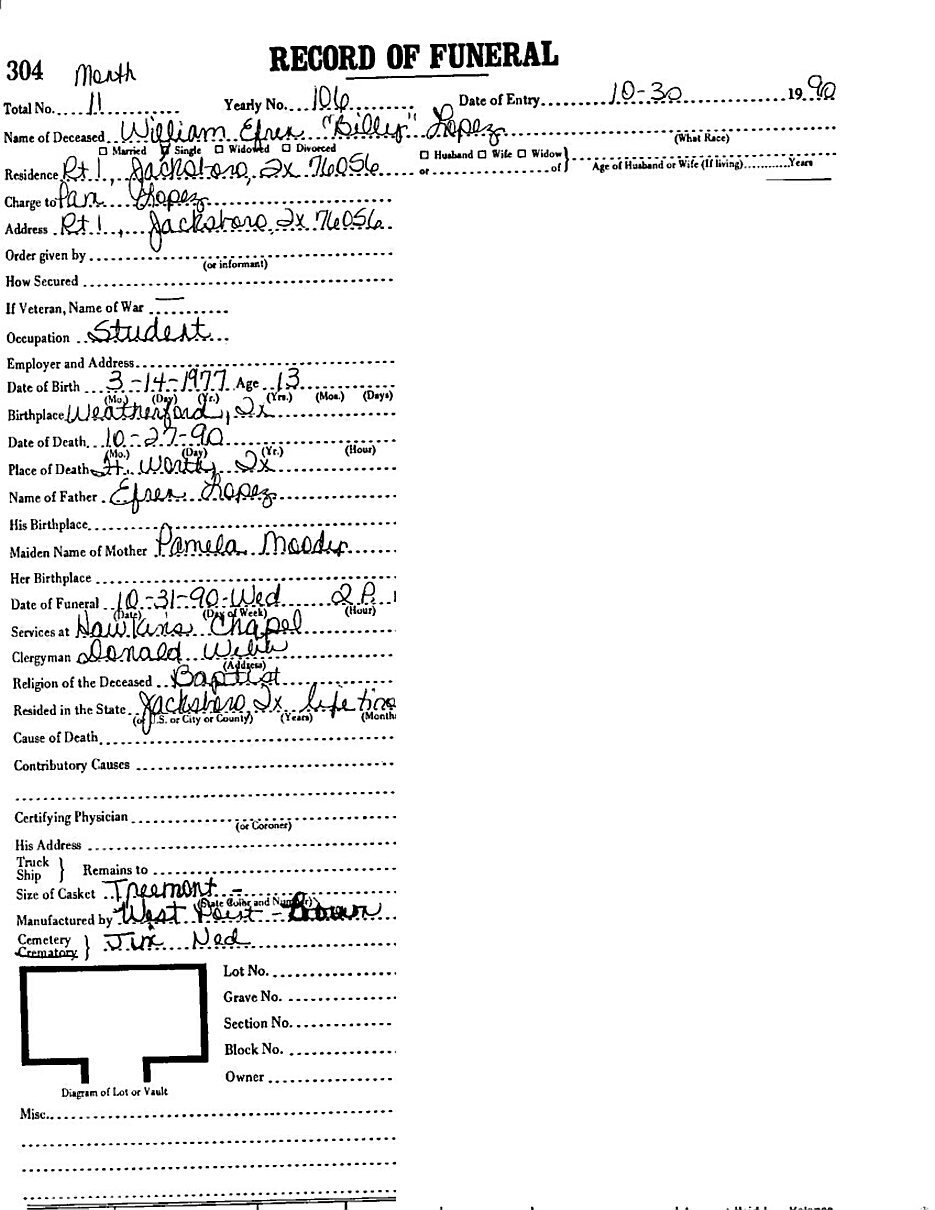 RECORD OF FUNERAL
304 Month
Total No. 11 Yearly No. 106 Date of Entry 10-30 1990
Name of Deceased William Efren "Billy" Lopez (What Race)
Married Single Widowed Divorced Husband Wife Widow
Residence Rt 1, Jacksboro, Tx 76056 or of Age of Husband or Wife (If living) Years
Charge to Pam Lopez
Address Rt 1, Jacksboro, Tx 76056
Order given by
(or informant)
How Secured
If Veteran, Name of War —
Occupation Student
Employer and Address
Date of Birth 3-14-1977 Age 13
(Mo.) (Day) (Yr.) (Yrs.) (Mos.) (Days)
Birthplace Weatherford, Tx
Date of Death 10-27-90
(Mo.) (Day) (Yr.) (Hour)
Place of Death Ft. Worth, Tx
Name of Father Efren Lopez
His Birthplace
Maiden Name of Mother Pamela Moody
Her Birthplace
Date of Funeral 10-31-90 Wed 2 P.
(Date) (Day of Week) (Hour)
Services at Hawkins Chapel
Clergyman Donald Webb
(Address)
Religion of the Deceased Baptist
Resided in the State Jacksboro, Tx life time
(of U.S. or City or County) (Years) (Month
Cause of Death
Contributory Causes
Certifying Physician
(or Coroner)
His Address
Truck
Ship } Remains to
Size of Casket Treemont -
(State Color and Number)
Manufactured by West Point - Brown
Cemetery
Crematory } Jim Ned
Lot No.
Grave No.
Section No.
Block No.
Owner
Diagram of Lot or Vault
Misc.